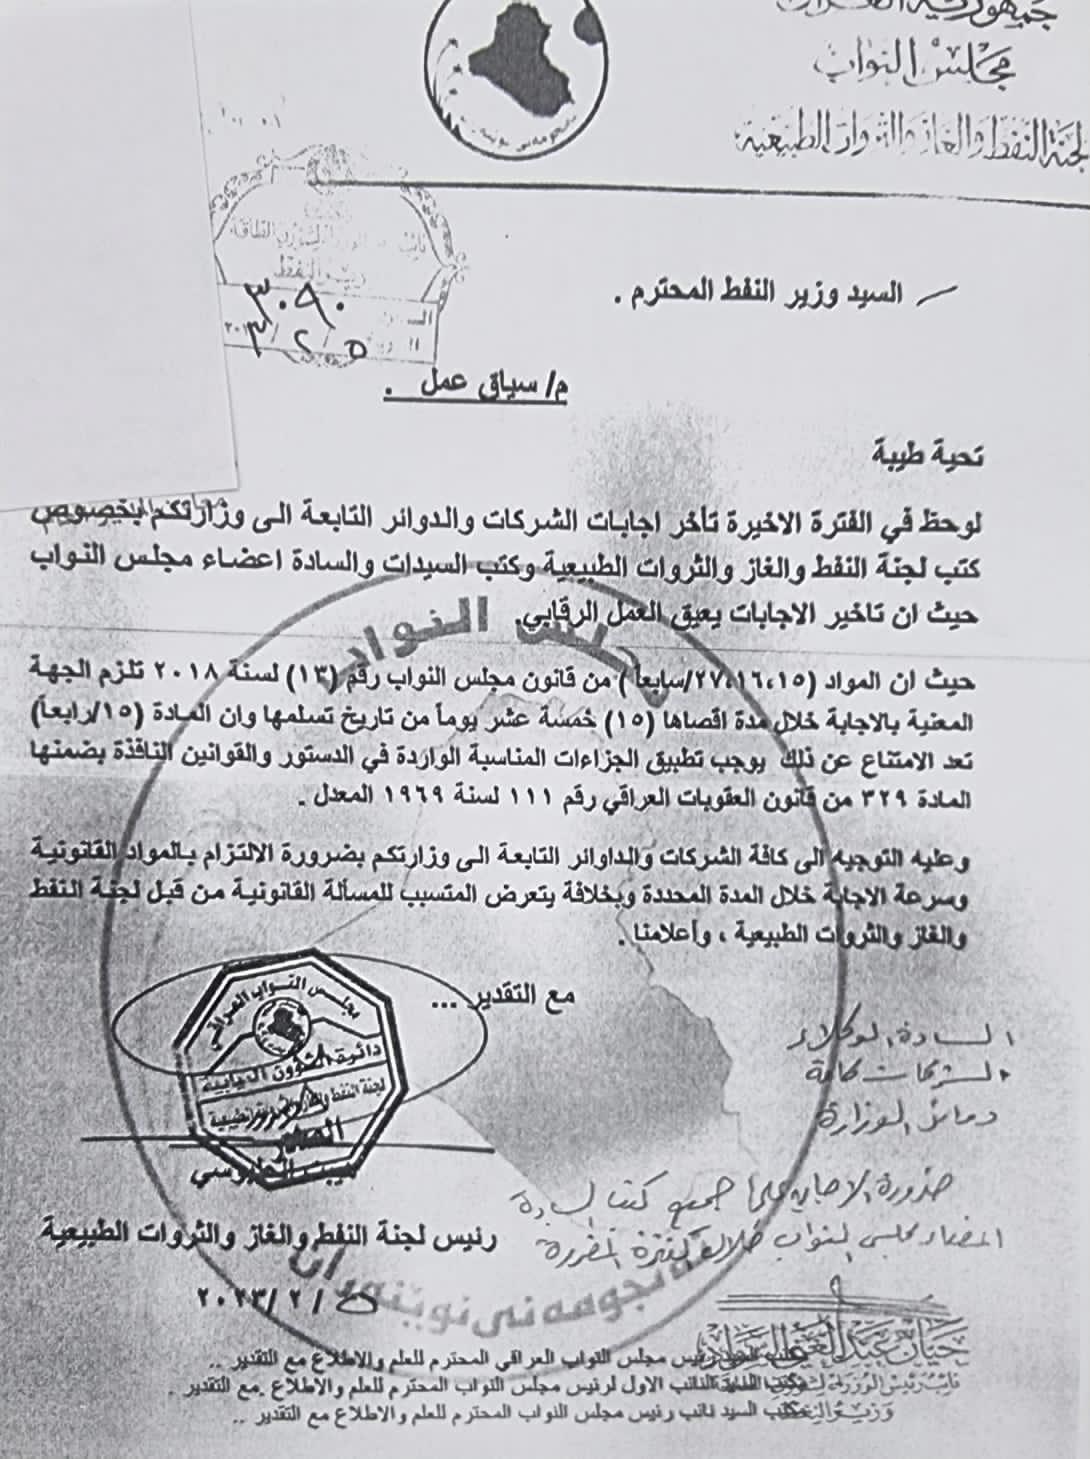 جمهورية العراق
مجلس النواب
لجنة النفط والغاز والثروات الطبيعية
السيد وزير النفط المحترم .
٣٠٩٠
٥ / ٢ /
م/ سياق عمل .
تحية طيبة
لوحظ في الفترة الاخيرة تأخر اجابات الشركات والدوائر التابعة الى وزارتكم بخصوص
كتب لجنة النفط والغاز والثروات الطبيعية وكتب السيدات والسادة اعضاء مجلس النواب
حيث ان تاخير الاجابات يعيق العمل الرقابي.
حيث ان المواد (٢٧،١٦،١٥/سابعاً) من قانون مجلس النواب رقم (١٣) لسنة ٢٠١٨ تلزم الجهة
المعنية بالاجابة خلال مدة اقصاها (١٥) خمسة عشر يوماً من تاريخ تسلمها وان المادة (١٥/رابعاً)
تعد الامتناع عن ذلك يوجب تطبيق الجزاءات المناسبة الواردة في الدستور والقوانين النافذة بضمنها
المادة ٣٢٩ من قانون العقوبات العراقي رقم ١١١ لسنة ١٩٦٩ المعدل .
وعليه التوجيه الى كافة الشركات والداوائر التابعة الى وزارتكم بضرورة الالتزام بالمواد القانونية
وسرعة الاجابة خلال المدة المحددة وبخلافة يتعرض المتسبب للمسألة القانونية من قبل لجنة النفط
والغاز والثروات الطبيعية ، وأعلامنا .
مع التقدير ...
مجلس النواب العراقي
دائرة الشؤون النيابية
لجنة النفط والغاز والثروات الطبيعية
رئيس لجنة النفط والغاز والثروات الطبيعية
٥ /٢/٢٠٢٣
السادة الوكلاء
الشركات كافة
دوائر الوزارة
ضرورة الاجابة على جميع كتب السادة
اعضاء مجلس النواب خلال الفترة المقررة
مجلس النواب
ئه نجومه نى نوێنه ران
حيان عبد الغني
نائب رئيس الوزراء
وزير النفط
رئيس مجلس النواب العراقي المحترم للعلم والاطلاع مع التقدير ..
النائب الاول لرئيس مجلس النواب المحترم للعلم والاطلاع .مع التقدير .
مكتب السيد نائب رئيس مجلس النواب المحترم للعلم والاطلاع مع التقدير ..